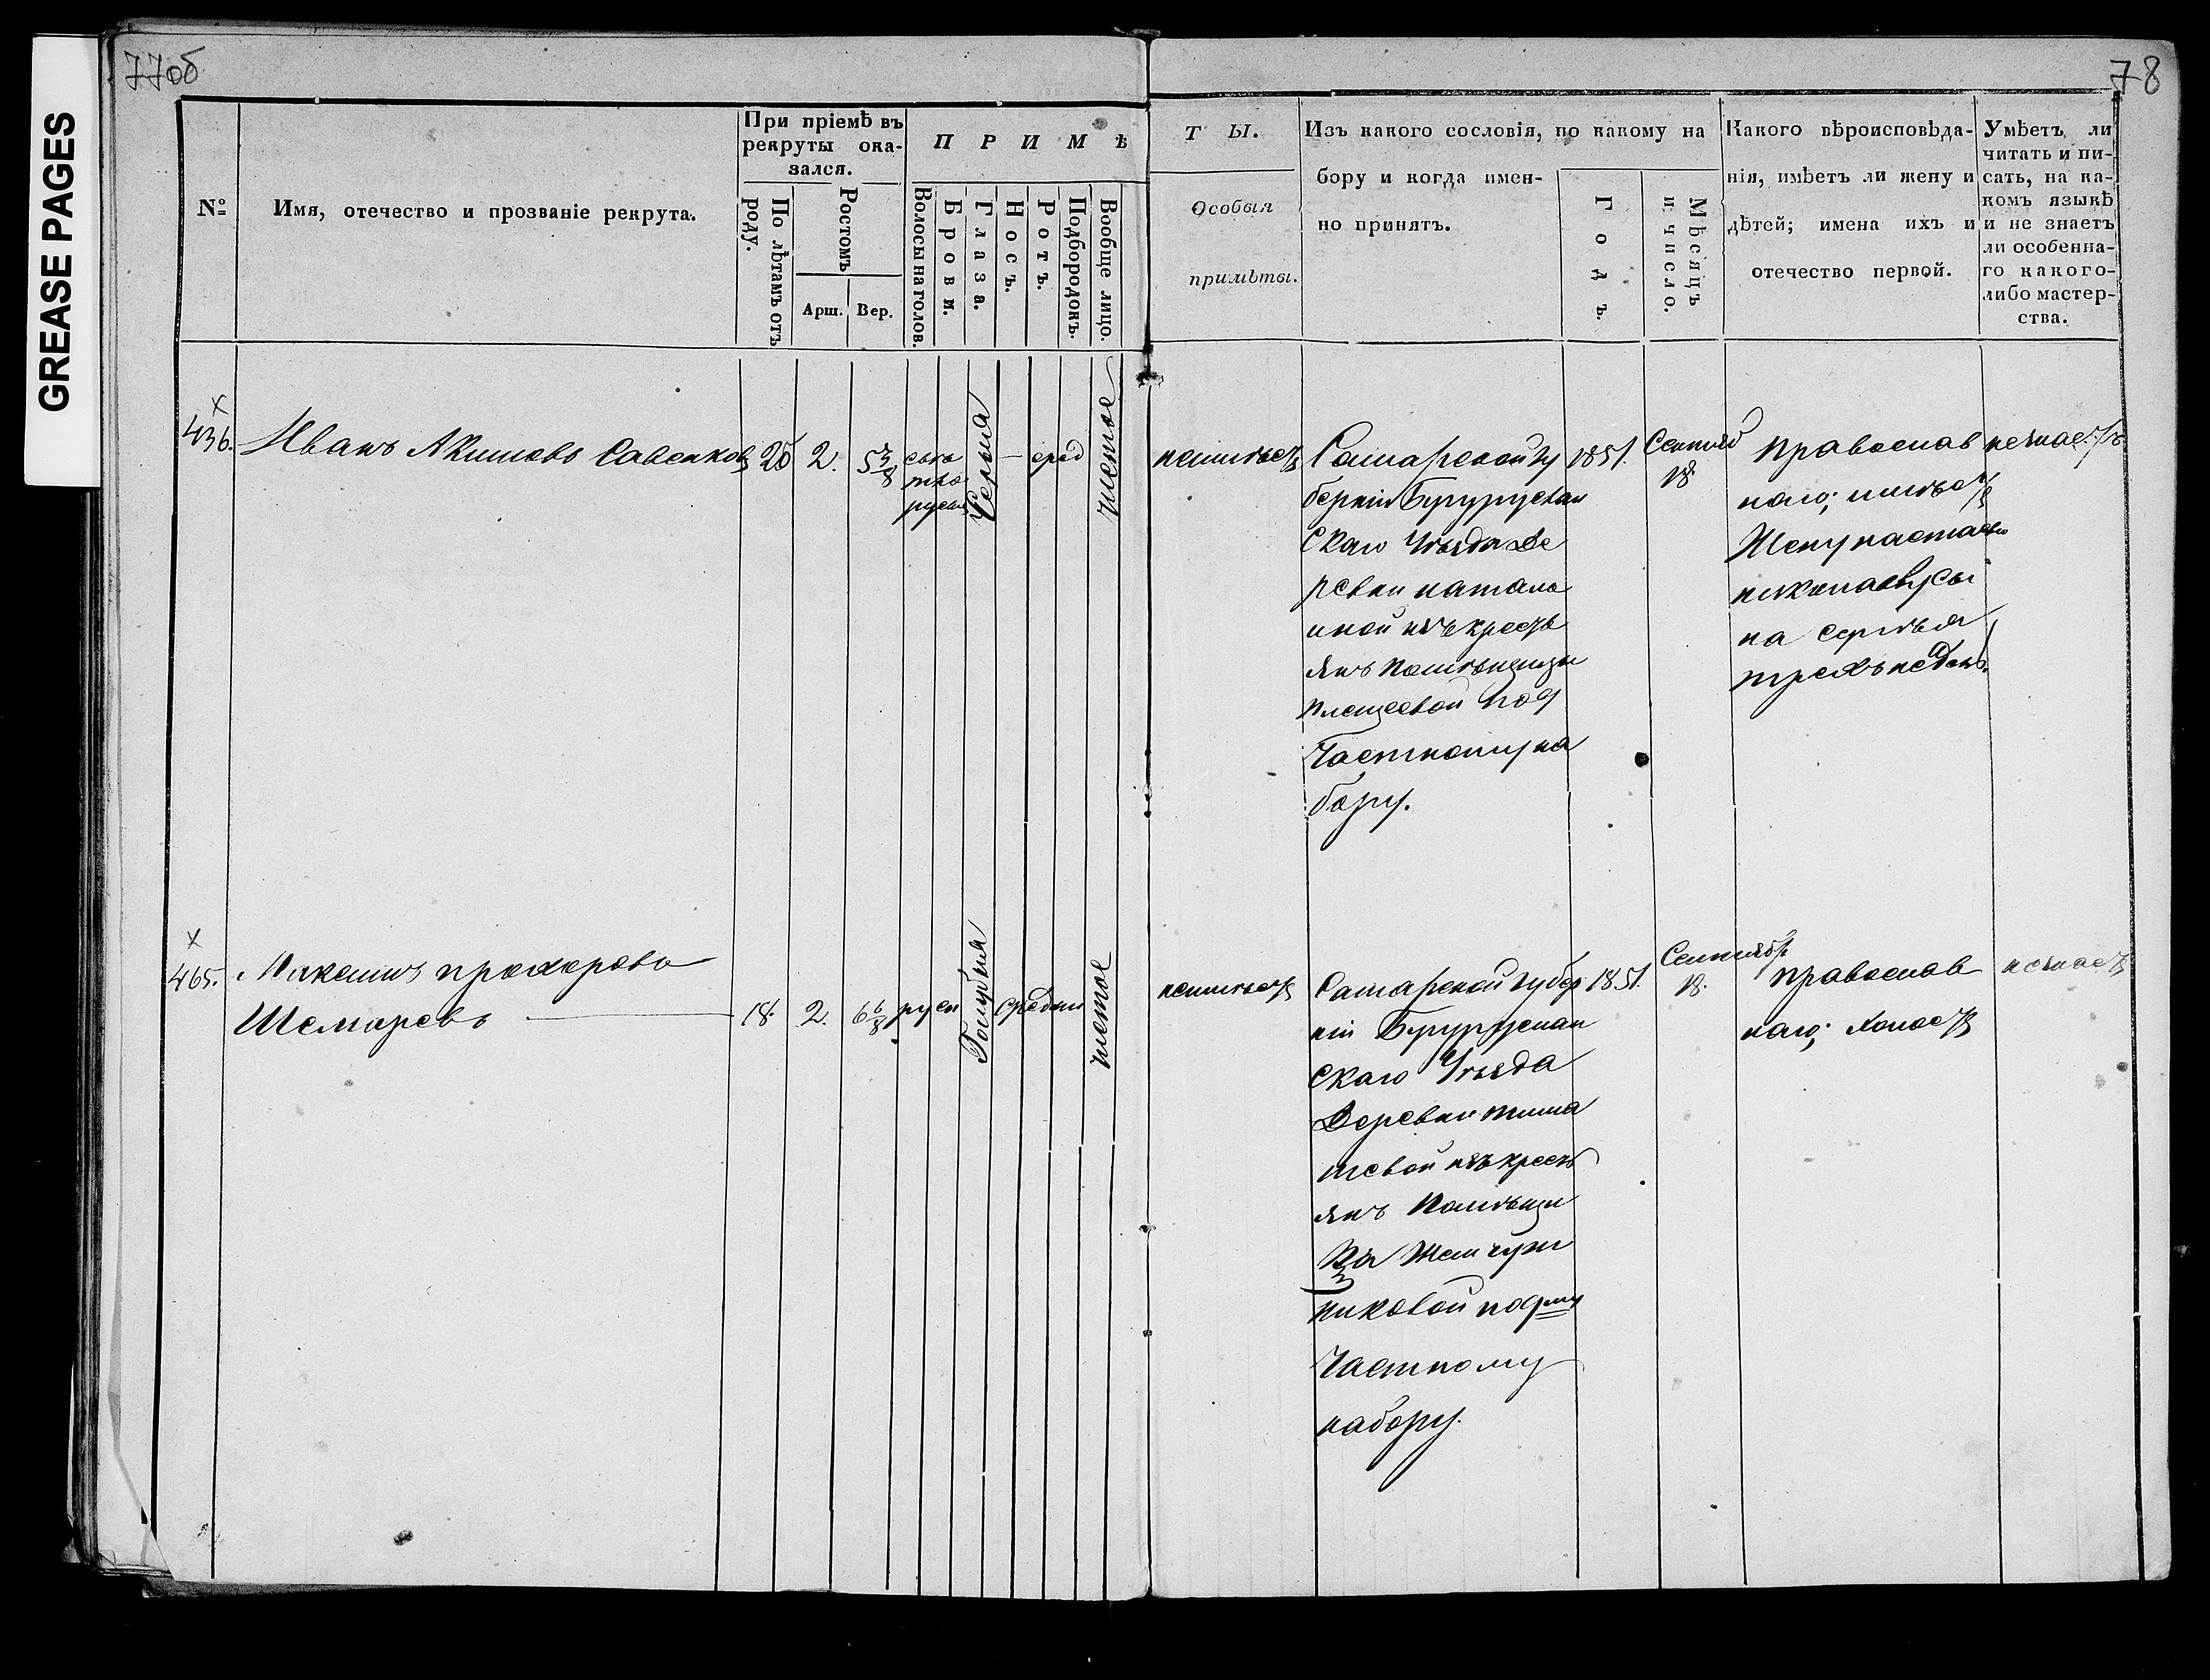 GREASE PAGES
77об
78
№
Имя, отечество и прозваніе рекрута.
При пріемѣ въ
рекруты ока-
зался.
По лѣтамъ отъ
роду.
Ростомъ
Арш.
Вер.
ПРИМѢ
Волосы на голов.
Брови.
Глаза.
Носъ.
Ротъ.
Подбородокъ.
Вообще лицо.
ТЫ.
Особыя
примѣты.
Изъ какого сословія, по какому на
бору и когда имен-
но принятъ.
Годъ.
Мѣсяцъ
и число.
Какого вѣроисповѣда-
нія, имѣетъ ли жену и
дѣтей; имена ихъ и
отечество первой.
Умѣетъ ли
читать и пи-
сать, на ка-
комъ языкѣ
и не знаетъ
ли особенна-
го какого-
либо мастер-
ства.
х
436.
Иванъ Акимовъ Савенковъ
2
5 3/8
свѣт
ло
русыя
Серыя
—
сред
чистое
неимѣетъ
Самарской гу
берніи Бугуруслан
скаго Уѣзда де
ревни наталь
иной изъ крестъ
янъ помѣщицы
плещеевой по 9
Частному на
бору.
1851.
Сентяб
18
православ
наго; имѣетъ
Жену настасью
незнаетъ
х
465.
Максимъ прохоровъ
Шемаревъ
18.
2.
6 6/8
русы
Голубыя
средни
чистое
неимѣетъ
Самарской губер
ніи Бугуруслан
скаго Уѣзда
Деревни тима
шевой изъ крестъ
янъ помѣщи
цы Жемчуж
никовой по 9му
Частному
набору.
1851.
Сентябр
18.
православ
наго; холостъ
незнаетъ